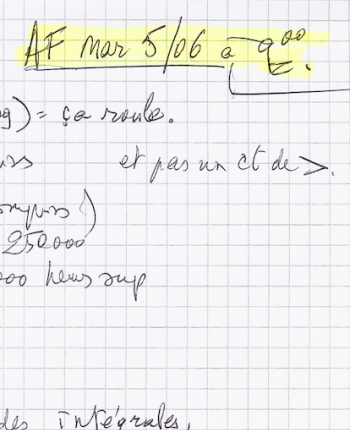 AF mar 5/06 à 900
) = ça roule.
et pas un ct de >.
)
250000
000 heures sup
des intégrales,